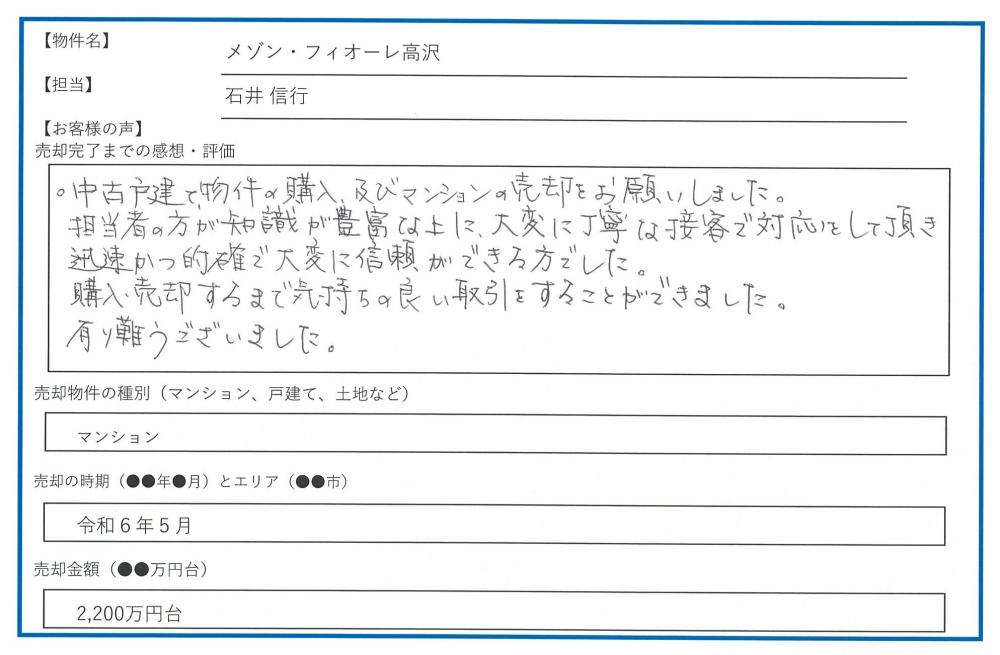 【物件名】
メゾン・フィオーレ高沢
【担当】
石井 信行
【お客様の声】
売却完了までの感想・評価
。中古戸建て物件の購入、及びマンションの売却をお願いしました。
担当者の方が知識が豊富な上に、大変に丁寧な接客で対応をして頂き
迅速かつ的確で大変に信頼ができる方でした。
購入・売却するまで気持ちの良い取引をすることができました。
有り難うございました。
売却物件の種別（マンション、戸建て、土地など）
マンション
売却の時期（●●年●月）とエリア（●●市）
令和６年５月
売却金額（●●万円台）
2,200万円台